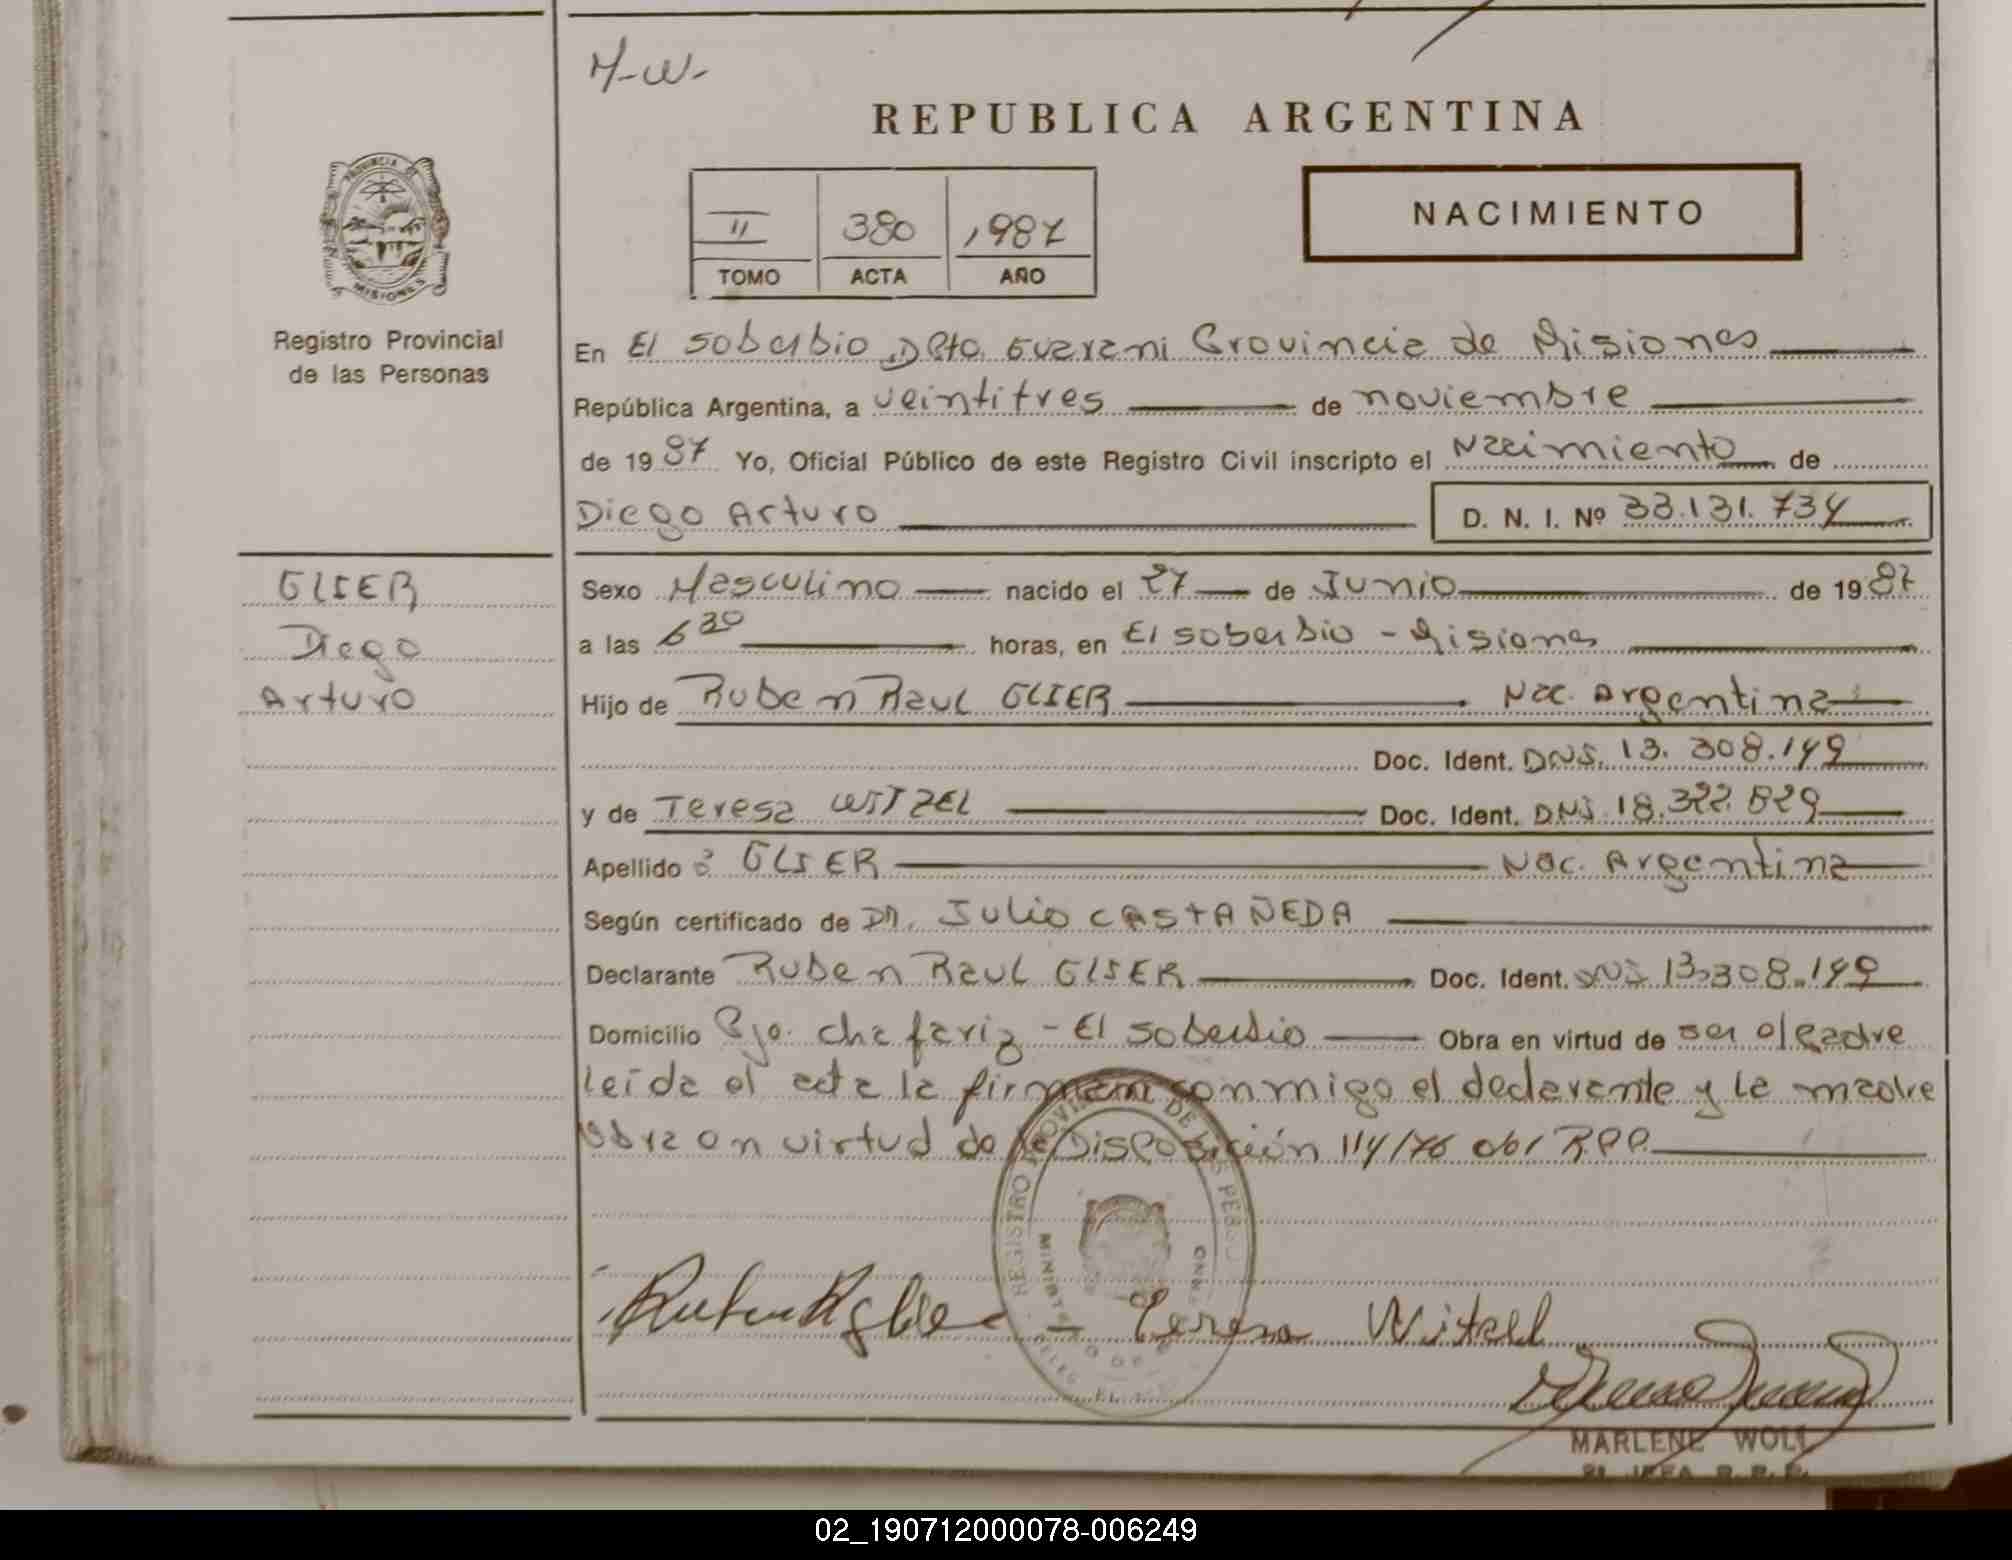 M-W-
REPUBLICA ARGENTINA
PROVINCIA DE
MISIONES
II 380 1987
TOMO ACTA AÑO
NACIMIENTO
Registro Provincial
de las Personas
En El Soberbio, Dpto. Guarani Provincia de Misiones
República Argentina, a veintitres de noviembre
de 1987 Yo, Oficial Público de este Registro Civil inscripto el Nacimiento de
Diego Arturo D. N. I. Nº 33.131.734
GLIER
Diego
Arturo
Sexo Masculino nacido el 27 de Junio de 1987
a las 6 30 horas, en El soberbio - Misiones
Hijo de Ruben Raul GLIER Nac. Argentina
Doc. Ident. DNI. 13.308.149
y de Teresa WITZEL Doc. Ident. DNI 18.322.829
Apellido GLIER Nac. Argentina
Según certificado de Dr. Julio CASTAÑEDA
Declarante Ruben Raul GLIER Doc. Ident. DNI 13.308.149
Domicilio Pje. Chafariz - El Soberbio Obra en virtud de ser el padre
Leida el acta la firman conmigo el declarante y la madre
Obra en virtud de la Disposición 114/76 del R.P.P.
REGISTRO PROVINCIAL DE LAS PERSONAS
MINISTERIO DE
Teresa Witzel
MARLENE WOLL
02_190712000078-006249